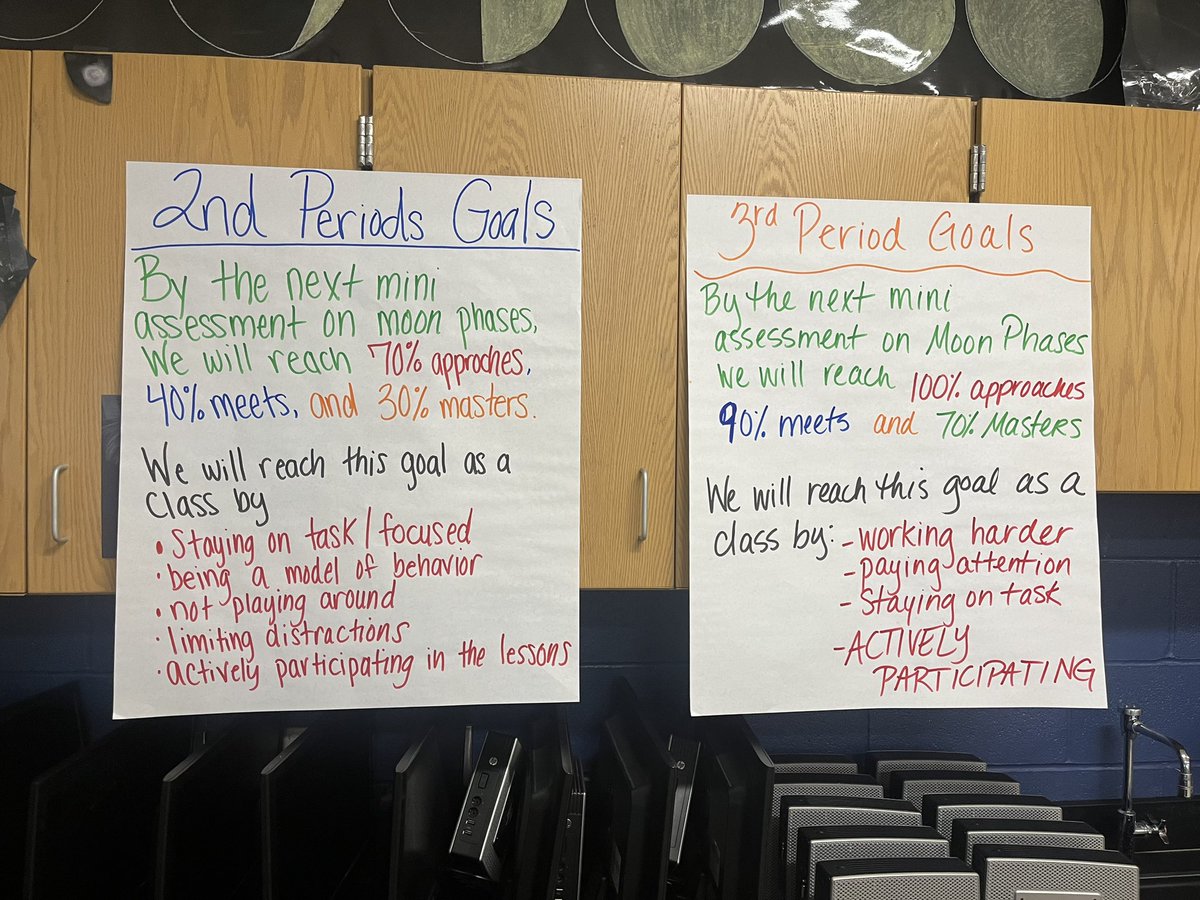 2nd Periods Goals
By the next mini
assessment on moon phases,
We will reach 70% approches,
40% meets, and 30% masters.
We will reach this goal as a
class by
• Staying on task/focused
• being a model of behavior
• not playing around
• limiting distractions
• actively participating in the lessons
3rd Period Goals
By the next mini
assessment on Moon Phases
we will reach 100% approaches
90% meets and 70% Masters
We will reach this goal as a
class by: - working harder
- paying attention
- Staying on task
- ACTIVELY
PARTICIPATING